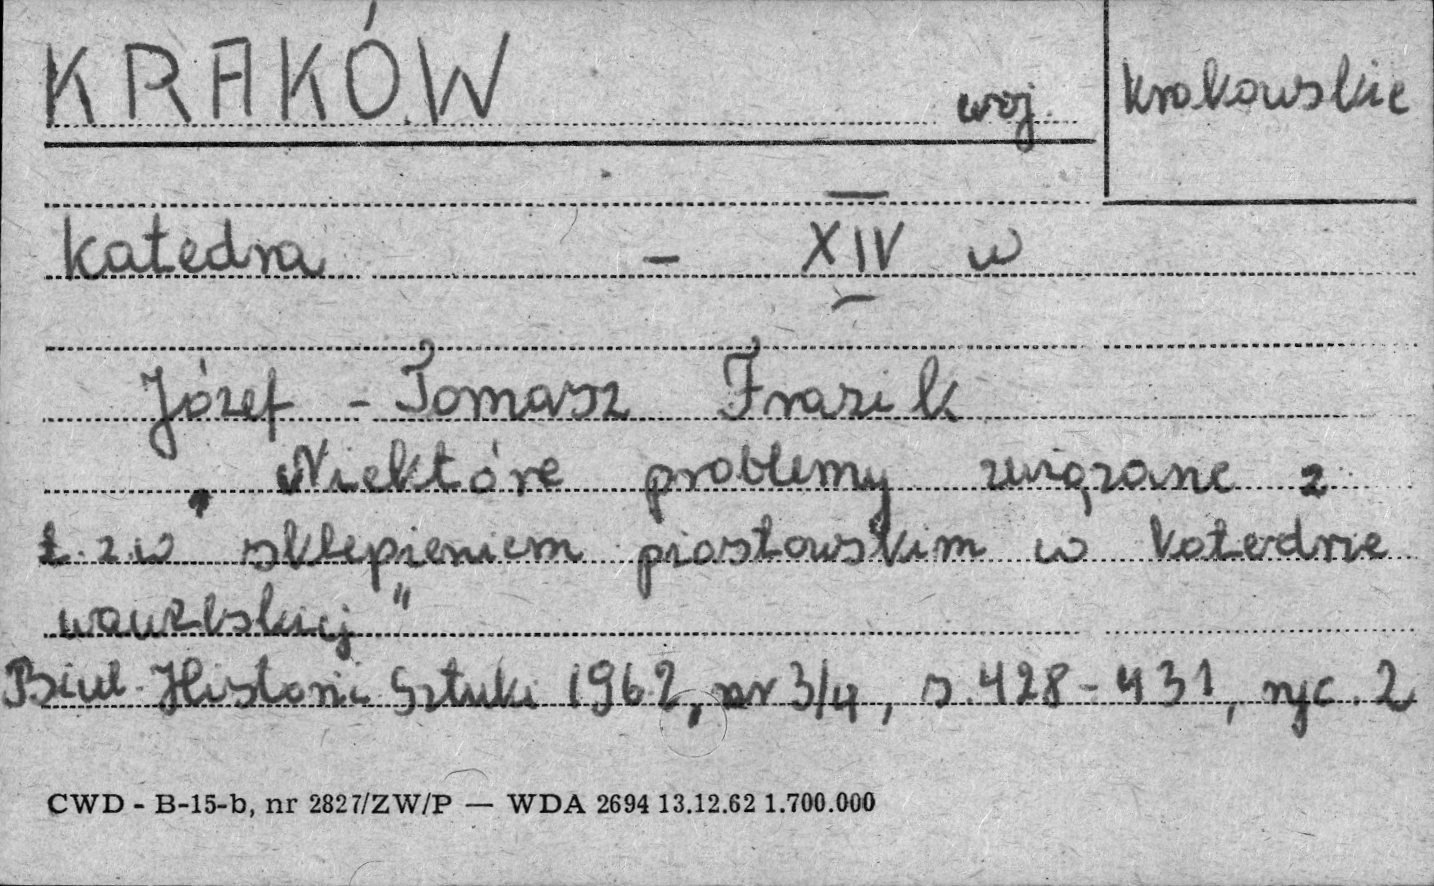 KRAKÓW woj. krakowskie
katedra - XIV w
Józef - Tomasz Frazik
„Niektóre problemy związane z
t.zw sklepieniem piastowskim w katedrze
wawelskiej"
Biul. Historii Sztuki 1962, nr 3/4, s. 428-431, ryc. 2
CWD - B-15-b, nr 2827/ZW/P — WDA 2694 13.12.62 1.700.000